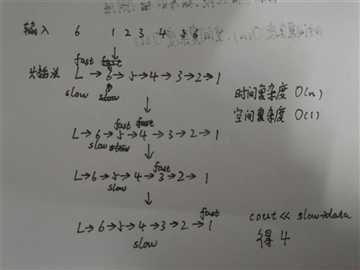 输入 6 1 2 3 4 5 6
fast
头插法 L→6→5→4→3→2→1
slow slow
时间复杂度 O(n)
空间复杂度 O(1)
fast fast
L→6→5→4→3→2→1
slow slow
fast
L→6→5→4→3→2→1
slow
fast
L→6→5→4→3→2→1
slow
cout << slow→data
得 4